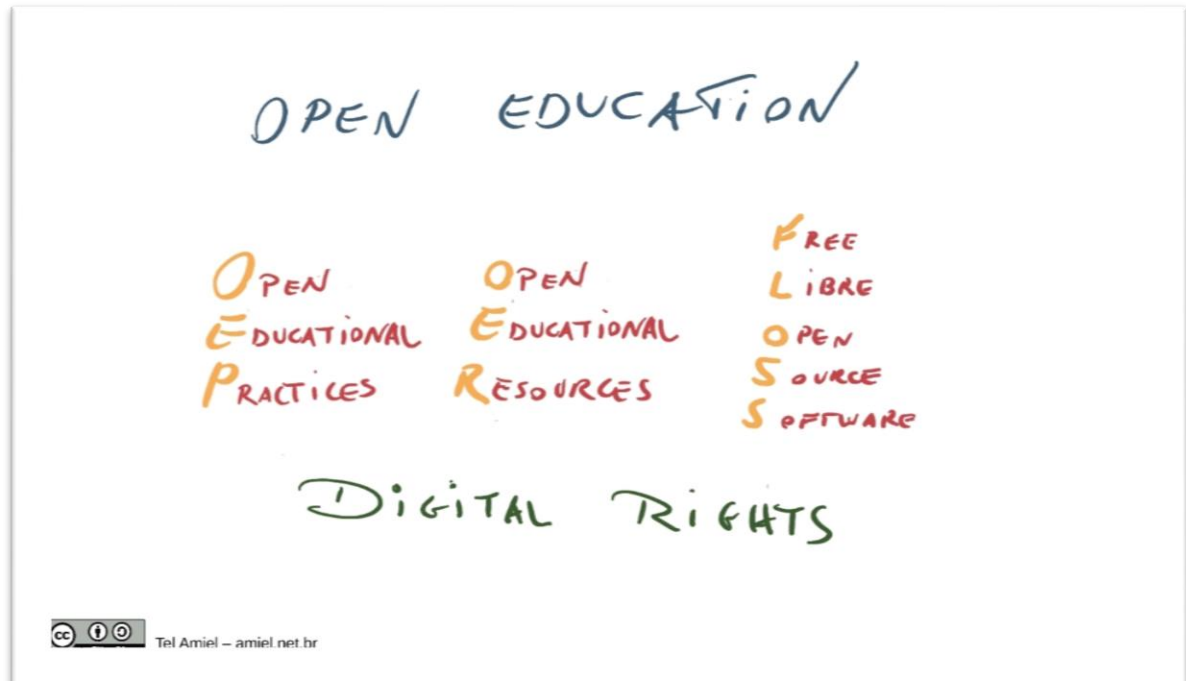 OPEN EDUCATION
OPEN
EDUCATIONAL
PRACTICES
OPEN
EDUCATIONAL
RESOURCES
FREE
LiBRE
OPEN
SOURCE
SOFTWARE
DiGiTAL RiGHTS
cc
Tel Amiel – amiel.net.br